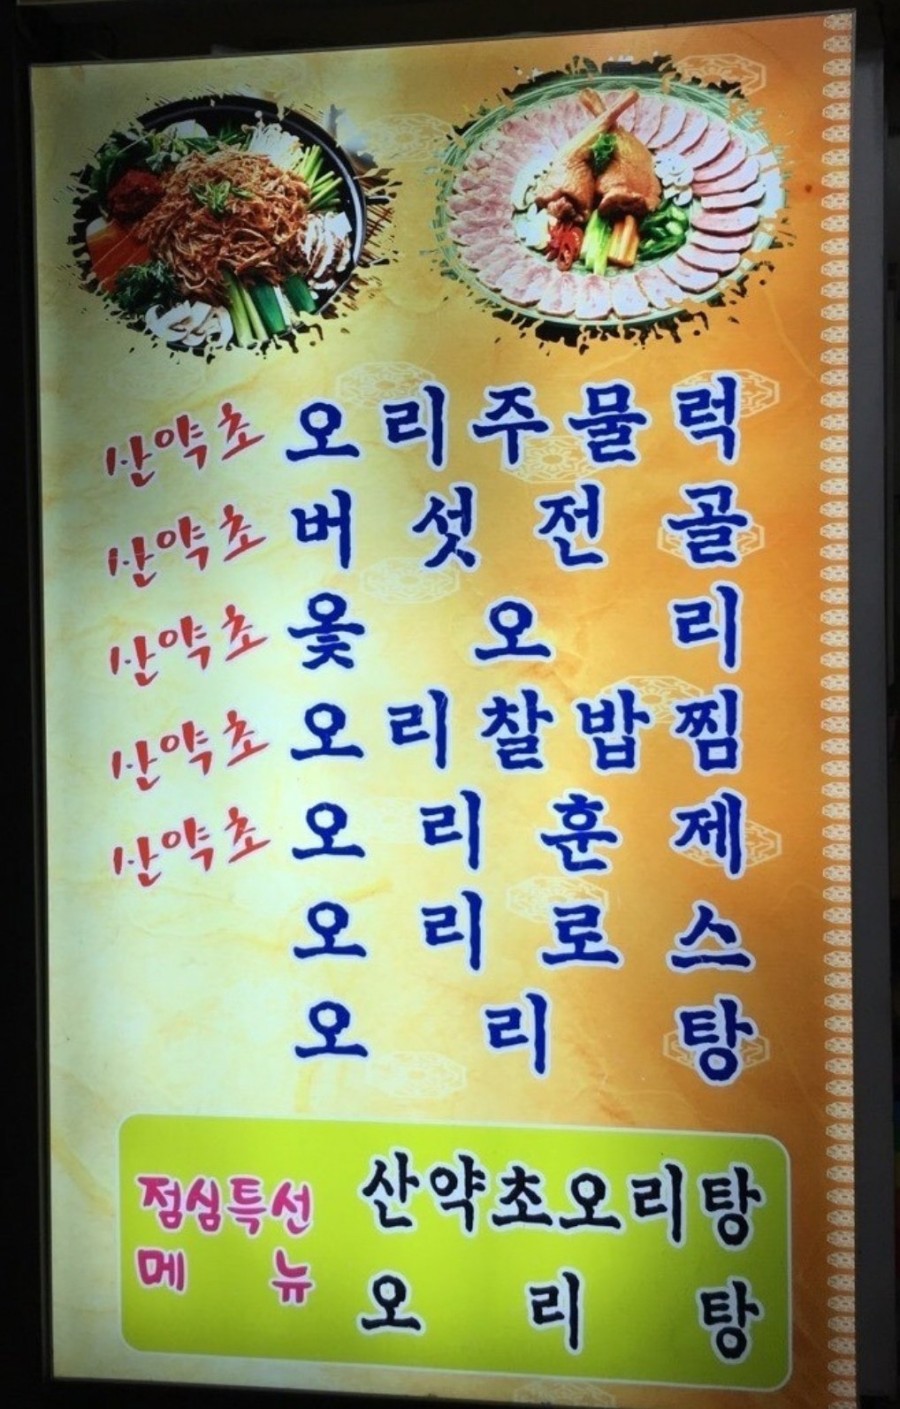 산약초 오리주물럭
산약초 버섯전골
산약초 옻오리
산약초 오리찰밥찜
산약초 오리훈제
오리로스
오리탕
점심특선 메뉴
산약초오리탕
오리탕